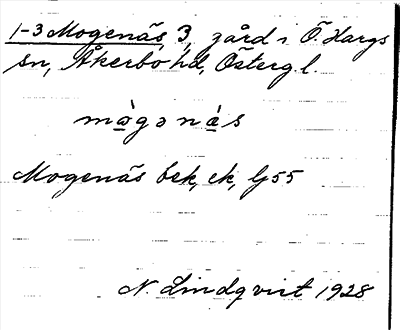 1-3 Mogenäs, 3, gård i Ö. Hargs
sn, Åkerbo hd, Österg l.
mò̱gəná̱s
Mogenäs bek, ek, G55
N. Lindqvist 1928